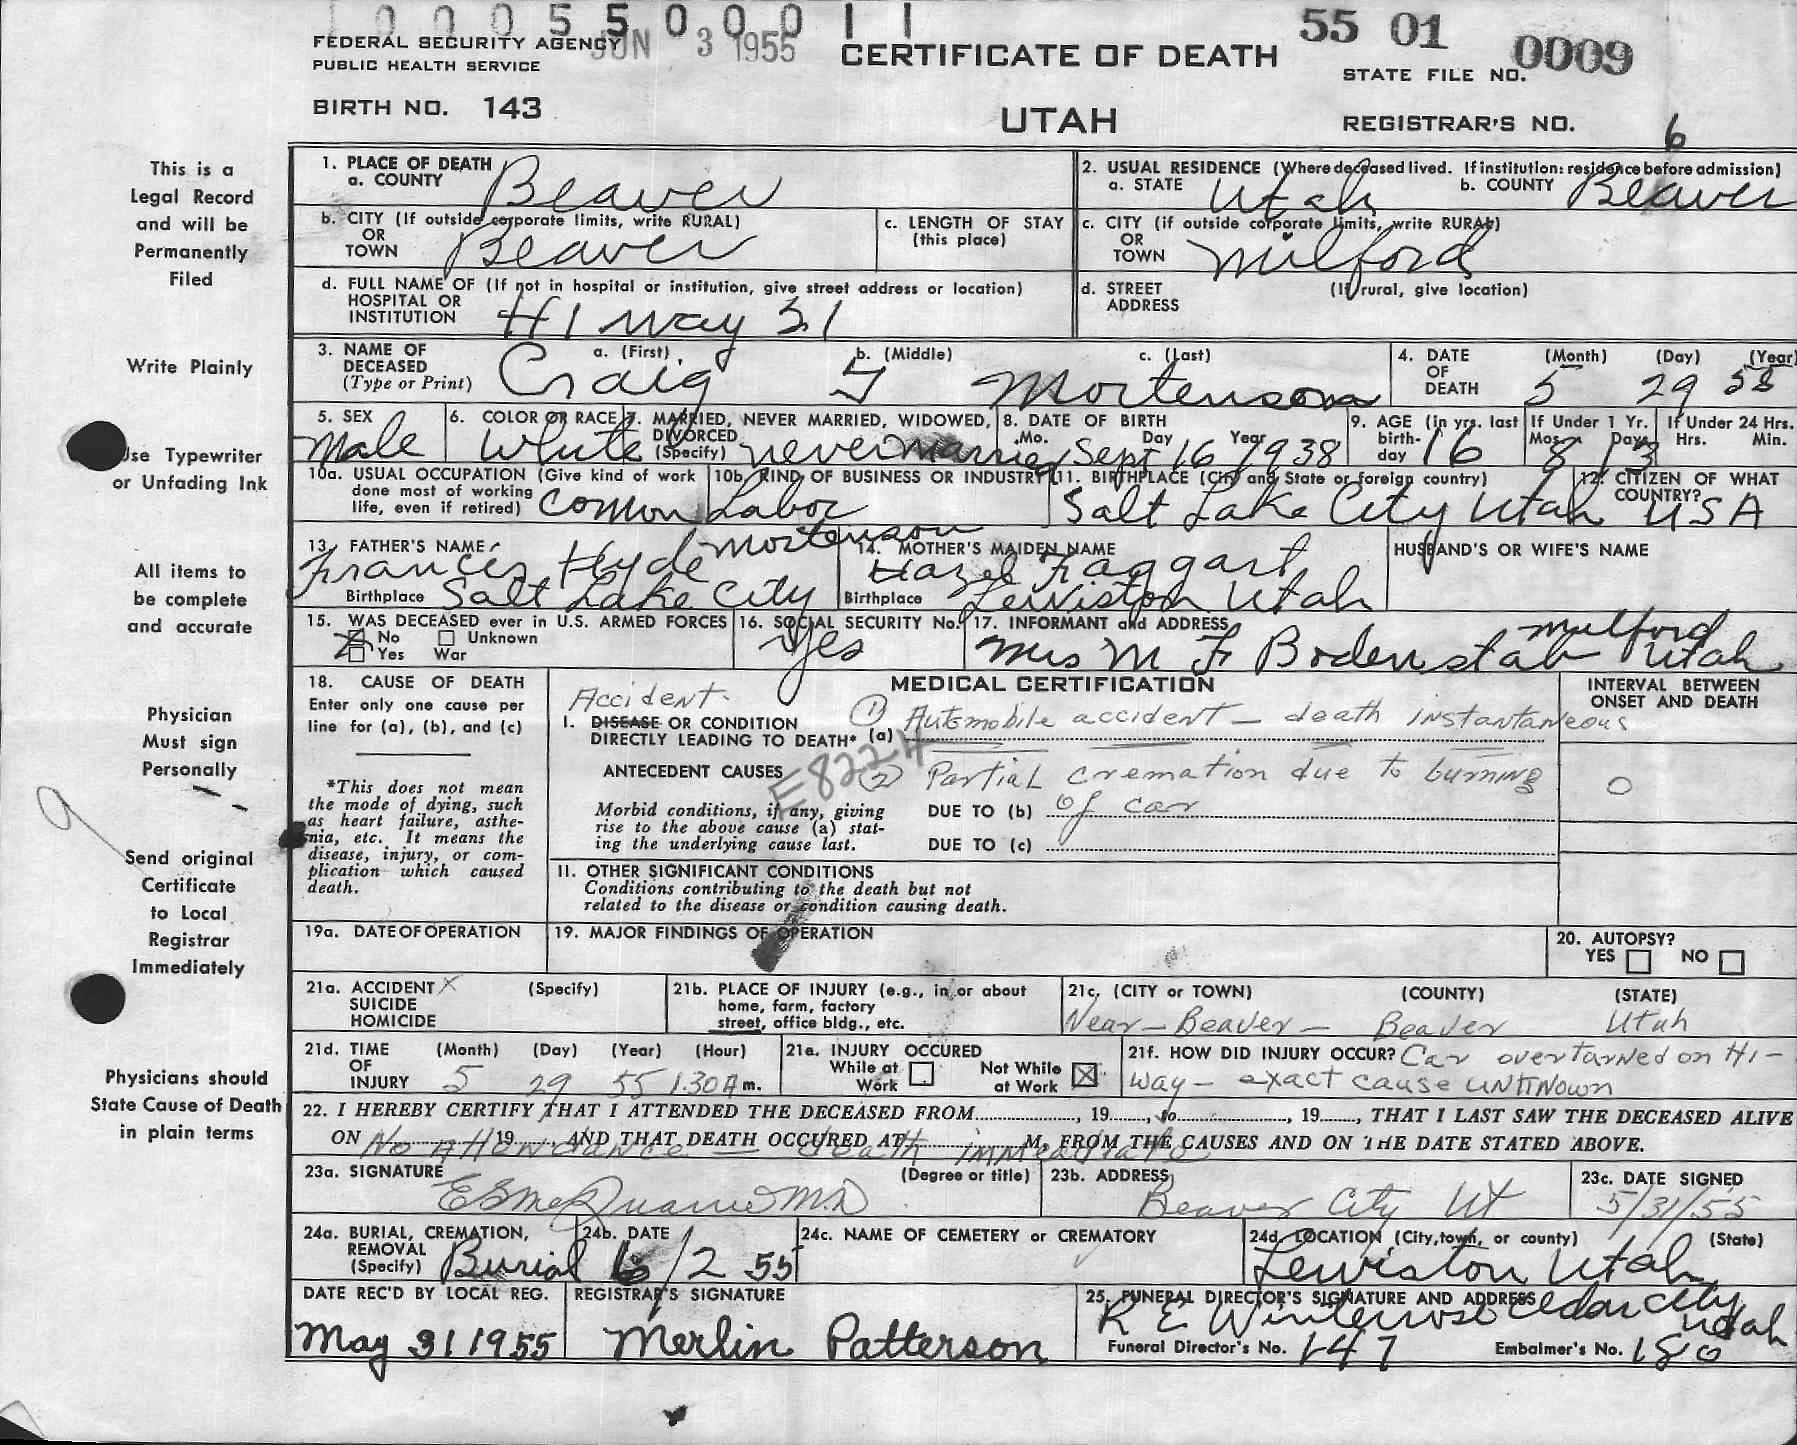 1 0 0 0 5 5 0 0 0 1 1
FEDERAL SECURITY AGENCY JUN 3 1955 CERTIFICATE OF DEATH 55 01 0009
PUBLIC HEALTH SERVICE STATE FILE NO.
BIRTH NO. 143 UTAH REGISTRAR'S NO. 6
This is a
Legal Record
and will be
Permanently
Filed
Write Plainly
Use Typewriter
or Unfading Ink
All items to
be complete
and accurate
Physician
Must sign
Personally
9
Send original
Certificate
to Local
Registrar
Immediately
Physicians should
State Cause of Death
in plain terms
1. PLACE OF DEATH
a. COUNTY Beaver
2. USUAL RESIDENCE (Where deceased lived. If institution: residence before admission)
a. STATE Utah b. COUNTY Beaver
b. CITY (If outside corporate limits, write RURAL)
OR
TOWN Beaver
c. LENGTH OF STAY
(this place)
c. CITY (if outside corporate limits, write RURAL)
OR
TOWN Milford
d. FULL NAME OF (If not in hospital or institution, give street address or location)
HOSPITAL OR
INSTITUTION HI way 21
d. STREET (If rural, give location)
ADDRESS
3. NAME OF a. (First) b. (Middle) c. (Last)
DECEASED
(Type or Print) Craig Mortenson
4. DATE (Month) (Day) (Year)
OF
DEATH 5 29 55
5. SEX
Male
6. COLOR OR RACE
White
7. MARRIED, NEVER MARRIED, WIDOWED,
DIVORCED
(Specify) never married
8. DATE OF BIRTH
Mo. Day Year
Sept 16 1938
9. AGE (In yrs. last
birth-
day 16
If Under 1 Yr.
Mos. Days
8 13
If Under 24 Hrs.
Hrs. Min.
10a. USUAL OCCUPATION (Give kind of work
done most of working
life, even if retired) Common
10b. KIND OF BUSINESS OR INDUSTRY
Labor
11. BIRTHPLACE (City and State or foreign country)
Salt Lake City Utah
12. CITIZEN OF WHAT
COUNTRY?
USA
13. FATHER'S NAME
Frances Hyde Mortenson
Birthplace Salt Lake City
14. MOTHER'S MAIDEN NAME
Hazel Faggart
Birthplace Lewiston Utah
HUSBAND'S OR WIFE'S NAME
15. WAS DECEASED ever in U.S. ARMED FORCES
No Unknown
Yes War
16. SOCIAL SECURITY No.
Yes
17. INFORMANT and ADDRESS
Mrs M F Bodenstab Milford
Utah
18. CAUSE OF DEATH
Enter only one cause per
line for (a), (b), and (c)
*This does not mean
the mode of dying, such
as heart failure, asthe-
nia, etc. It means the
disease, injury, or com-
plication which caused
death.
MEDICAL CERTIFICATION
Accident
I. DISEASE OR CONDITION
DIRECTLY LEADING TO DEATH* (a) (1) Automobile accident — death instantaneous
E822.4
ANTECEDENT CAUSES (2) Partial cremation due to burning
Morbid conditions, if any, giving
rise to the above cause (a) stat-
ing the underlying cause last.
DUE TO (b) of car
DUE TO (c)
INTERVAL BETWEEN
ONSET AND DEATH
0
11. OTHER SIGNIFICANT CONDITIONS
Conditions contributing to the death but not
related to the disease or condition causing death.
19a. DATE OF OPERATION
19. MAJOR FINDINGS OF OPERATION
20. AUTOPSY?
YES NO
21a. ACCIDENT X (Specify)
SUICIDE
HOMICIDE
21b. PLACE OF INJURY (e.g., in or about
home, farm, factory
street, office bldg., etc.
21c. (CITY or TOWN) (COUNTY) (STATE)
Near — Beaver — Beaver Utah
21d. TIME (Month) (Day) (Year) (Hour)
OF
INJURY 5 29 55 1:30 A m.
21e. INJURY OCCURED
While at Work Not While at Work X
21f. HOW DID INJURY OCCUR? Car overturned on HI-
Way — exact cause unknown
22. I HEREBY CERTIFY THAT I ATTENDED THE DECEASED FROM, 19, to, 19, THAT I LAST SAW THE DECEASED ALIVE
ON, 19, AND THAT DEATH OCCURED AT M, FROM THE CAUSES AND ON THE DATE STATED ABOVE.
No Attendance — death immediate
23a. SIGNATURE (Degree or title)
M.D
23b. ADDRESS
Beaver City Ut
23c. DATE SIGNED
5/31/55
24a. BURIAL, CREMATION,
REMOVAL
(Specify) Burial
24b. DATE
6/2 55
24c. NAME OF CEMETERY OR CREMATORY
24d. LOCATION (City, town, or county) (State)
Lewiston Utah
DATE REC'D BY LOCAL REG.
May 31 1955
REGISTRAR'S SIGNATURE
Merlin Patterson
25. FUNERAL DIRECTOR'S SIGNATURE AND ADDRESS
R E Winterrose Cedar City
Utah
Funeral Director's No. 147 Embalmer's No. 180